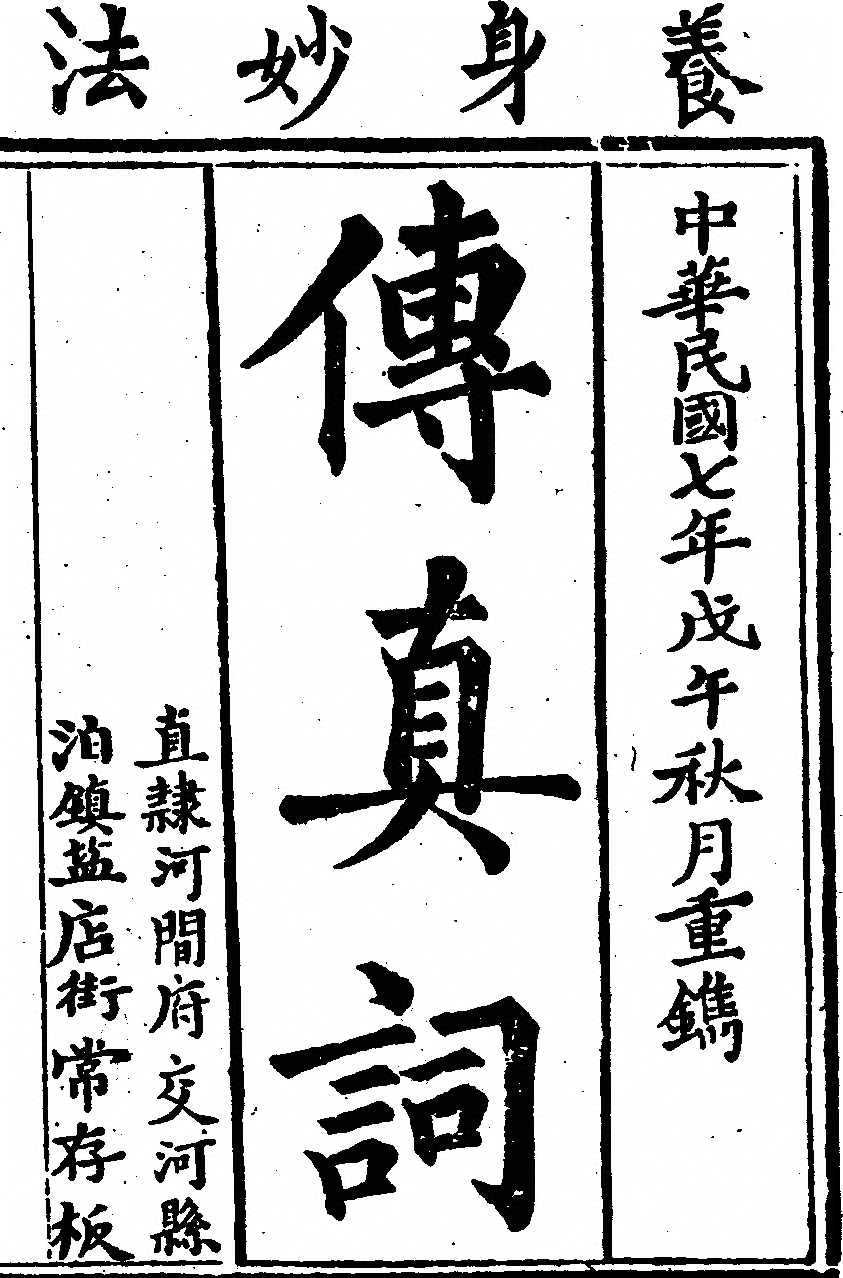 養身妙法
中華民國七年戊午秋月重鐫
傳真詞
直隸河間府交河縣
泊鎮盐店街常存板